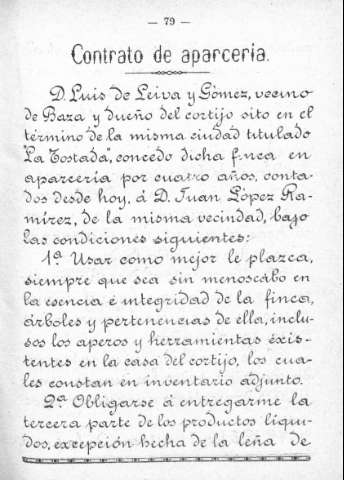 — 79 —
Contrato de aparceria.
D. Luis de Leiva y Gómez, vecino
de Baza y dueño del cortijo sito en el
término de la misma ciudad titulado
"La Tostada", concedo dicha finca en
aparcería por cuatro años, conta-
dos desde hoy, á D. Juan López Ra-
mírez, de la misma vecindad, bajo
las condiciones siguientes:
1ª Usar como mejor le plazca,
siempre que sea sin menoscabo en
la esencia é integridad de la finca,
árboles y pertenencias de ella, inclu-
sos los aperos y herramientas exis-
tentes en la casa del cortijo, los cua-
les constan en inventario adjunto.
2ª Obligarse á entregarme la
tercera parte de los productos líqui-
dos, excepción hecha de la leña de